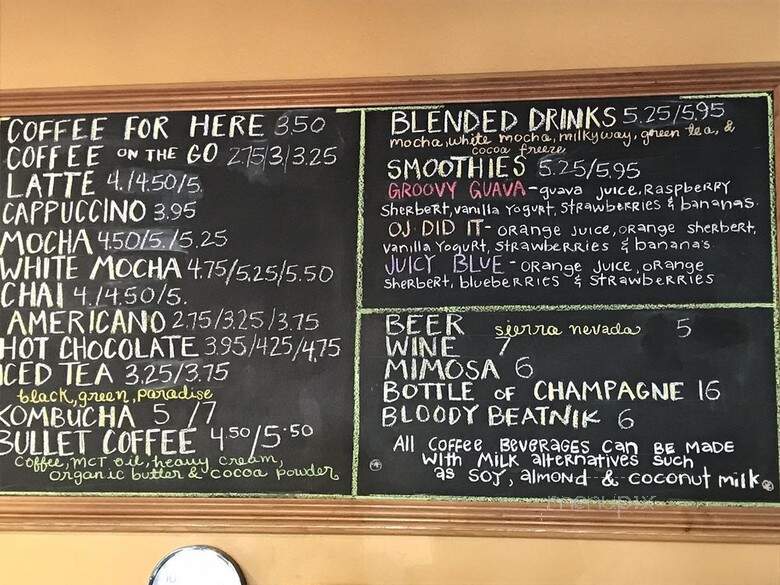 COFFEE FOR HERE 3.50
COFFEE ON THE GO 2.75/3/3.25
LATTE 4./4.50/5.
CAPPUCCINO 3.95
MOCHA 4.50/5./5.25
WHITE MOCHA 4.75/5.25/5.50
CHAI 4./4.50/5.
AMERICANO 2.75/3.25/3.75
HOT CHOCOLATE 3.95/4.25/4.75
ICED TEA 3.25/3.75
black, green, paradise
KOMBUCHA 5/7
BULLET COFFEE 4.50/5.50
Coffee, MCT oil, heavy cream,
organic butter & cocoa powder
BLENDED DRINKS 5.25/5.95
mocha, white mocha, milkyway, green tea, &
cocoa freeze
SMOOTHIES 5.25/5.95
GROOVY GUAVA - guava juice, Raspberry
Sherbert, vanilla Yogurt, strawberries & bananas.
OJ DID IT - orange juice, orange sherbert,
vanilla Yogurt, strawberries & banana's
JUICY BLUE - orange juice, orange
sherbert, blueberries & strawberries
BEER sierra nevada 5
WINE 7
MIMOSA 6
BOTTLE OF CHAMPAGNE 16
BLOODY BEATNIK 6
All Coffee Beverages can be made
with milk alternatives such
as soy, almond & coconut milk
menupix